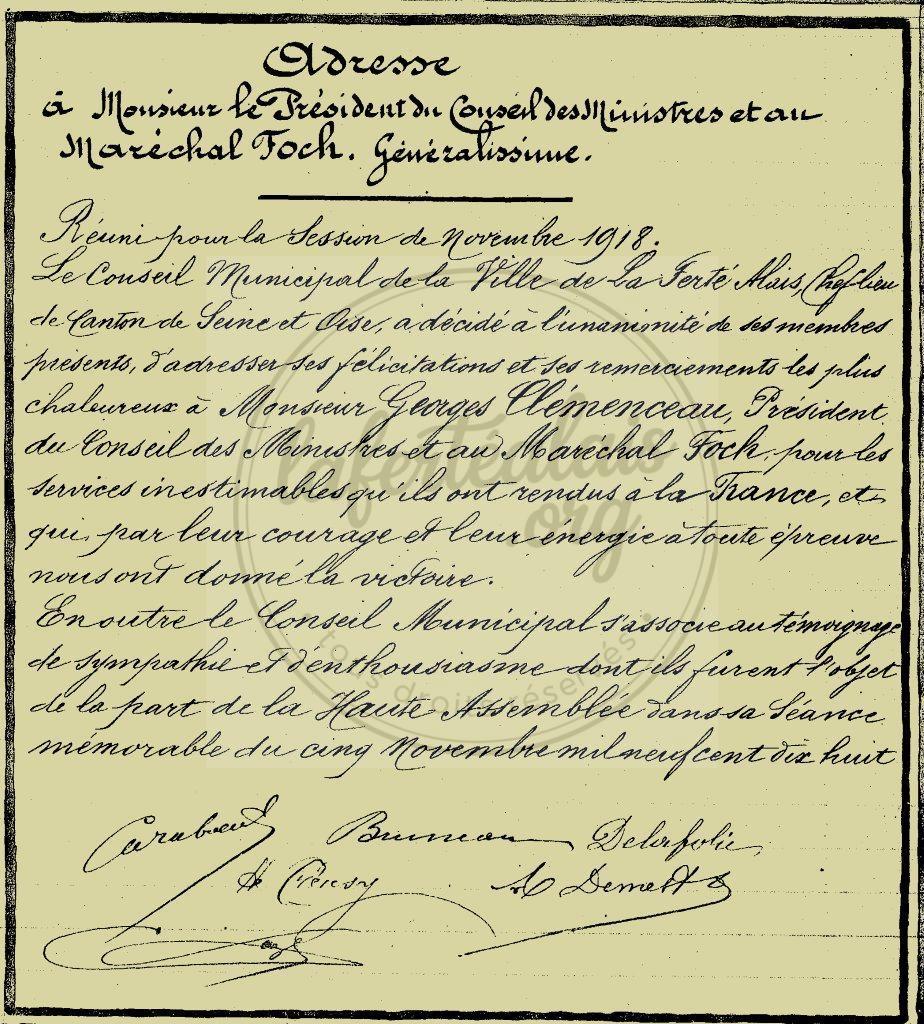 Adresse
à Monsieur le Président du Conseil des Ministres et au
Maréchal Foch. Généralissime.
Réuni pour la Session de Novembre 1918.
Le Conseil Municipal de la Ville de La Ferté Alais, Chef-lieu
de Canton de Seine et Oise, a décidé à l'unanimité de ses membres
présents, d'adresser ses félicitations et ses remerciements les plus
chaleureux à Monsieur Georges Clémenceau, Président
du Conseil des Ministres et au Maréchal Foch, pour les
services inestimables qu'ils ont rendus à la France, et
qui, par leur courage et leur énergie à toute épreuve
nous ont donné la victoire.
En outre le Conseil Municipal s'associe au témoignage
de sympathie et d'enthousiasme dont ils furent l'objet
de la part de la Haute Assemblée dans sa Séance
mémorable du cinq Novembre mil neuf cent dix huit
Bruneau Delafolie
lafertéalais
.org
tous droits réservés